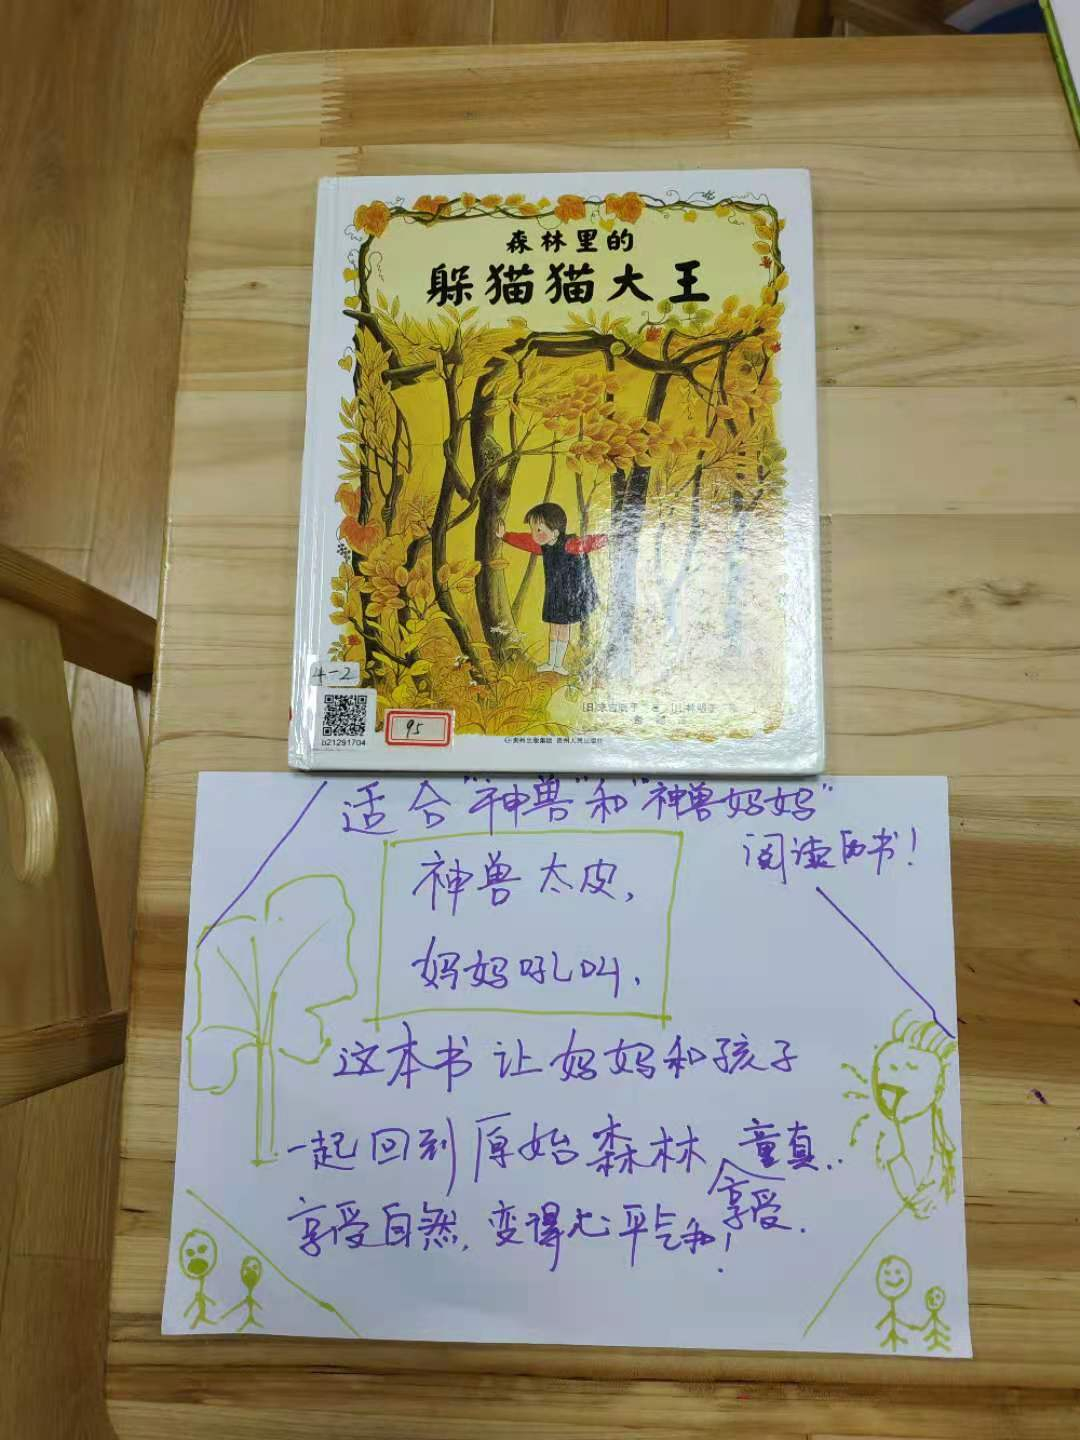 森林里的
躲猫猫大王
4-2
b21291704
95
贵州出版集团 贵州人民出版社
适合"神兽"和"神兽妈妈"
阅读的书！
神兽太皮，
妈妈吼叫，
这本书让妈妈和孩子
一起回到原始森林，享受童真..
享受自然，变得心平气和！享受.